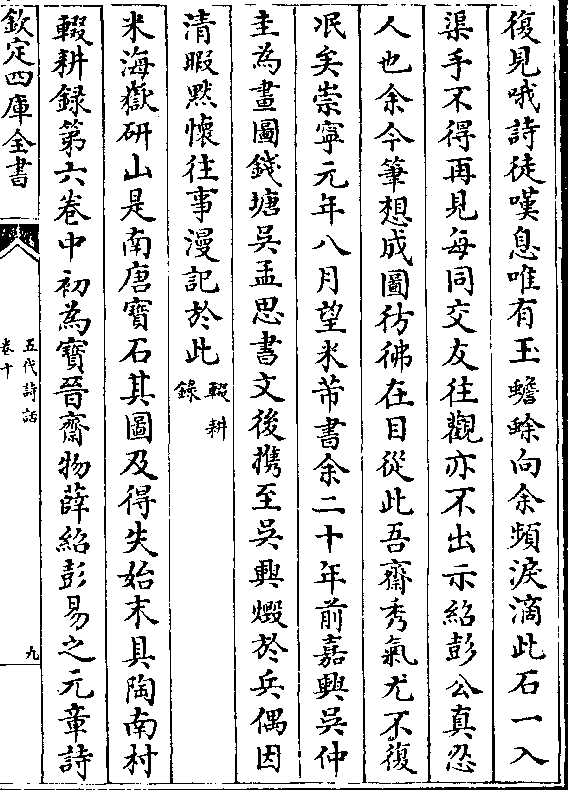 復見哦詩徒嘆息唯有玉蟾蜍向余頻淚滴此石一入
渠手不得再見每同交友往觀亦不出示紹彭公真忍
人也余今筆想成圖彷彿在目從此吾齋秀氣尤不復
泯矣崇寧元年八月望米芾書余二十年前嘉興吳仲
圭為畫圖錢塘吳孟思書文後攜至吳興燬於兵偶因
清暇黙懷往事漫記於此
輟耕
錄
米海嶽研山是南唐寶石其圖及得失始末具陶南村
輟耕録第六卷中初為寶晉齋物薛紹彭易之元章詩
欽定四庫全書
五代詩話
卷十
九